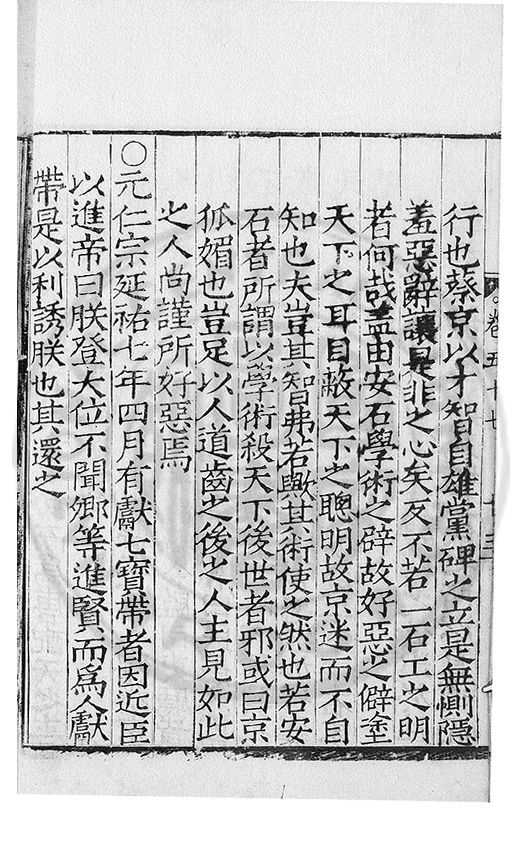 行也蔡京以才智自雄黨碑之立是無惻隱
羞惡辭讓是非之心矣反不若一石工之明
者何哉盖由安石學術之辟故好惡之僻塗
天下之耳目蔽天下之聰明故京迷而不自
知也夫豈其智弗若歟其術使之然也若安
石者所謂以學術殺天下後世者邪或曰京
狐媚也豈足以人道齒之後之人主見如此
之人尚謹所好惡焉
〇元仁宗延祐七年四月有獻七寶帶者因近臣
以進帝曰朕登大位不聞卿等進賢而爲人獻
帶是以利誘朕也其還之